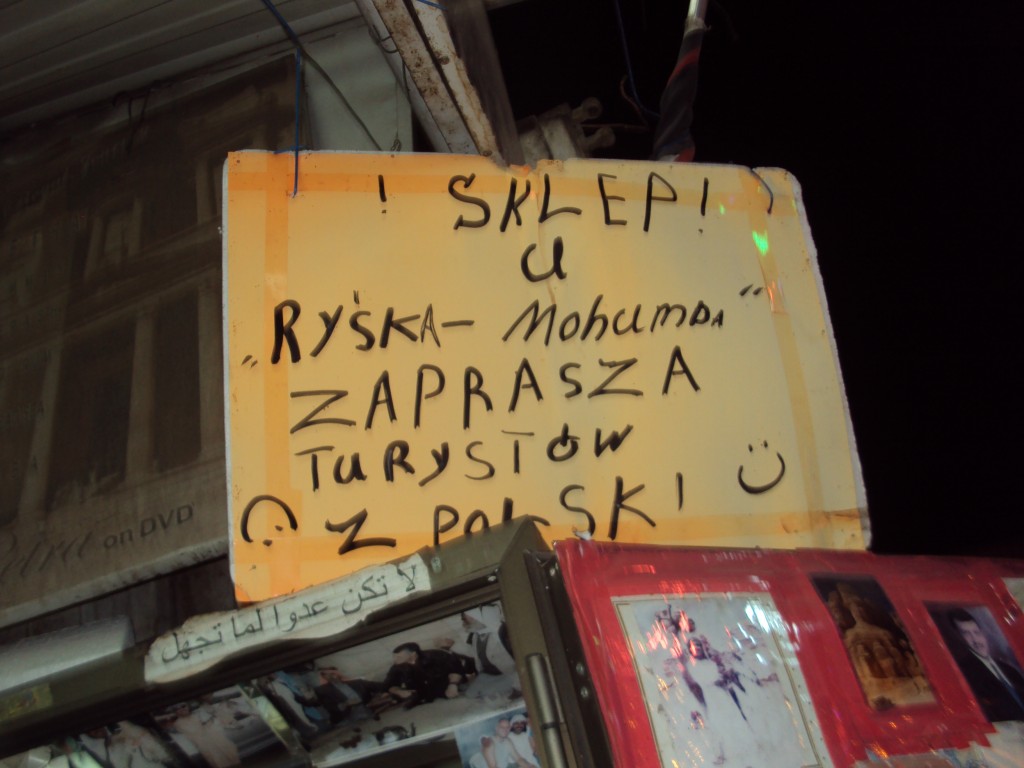 ! SKLEP!
U
„RYŚKA- MOhUMDA“
ZAPRASZA
TURYSTÓW
Z POLSKI
on DVD
لا تكن عدوا لما تجهل